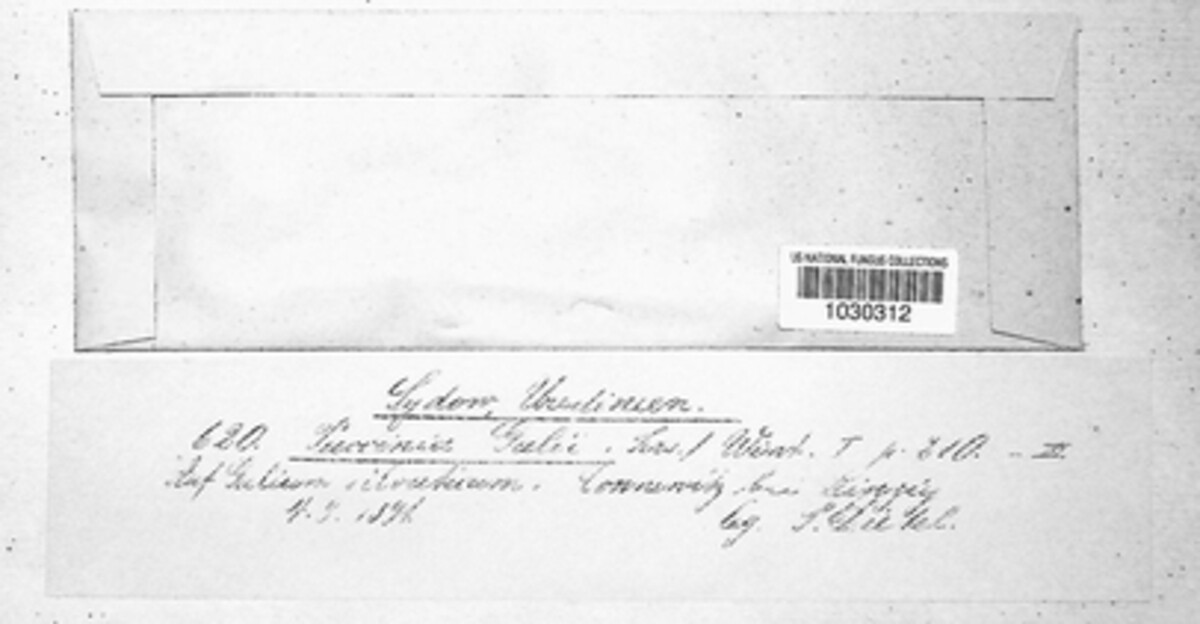 US NATIONAL FUNGUS COLLECTIONS
1030312
Sydow, Uredineen.
620. Puccinia Galii. Wint. I p. 210. – III.
Auf Galium silvaticum. Connewitz bei Leipzig
lg. P. Dietel.